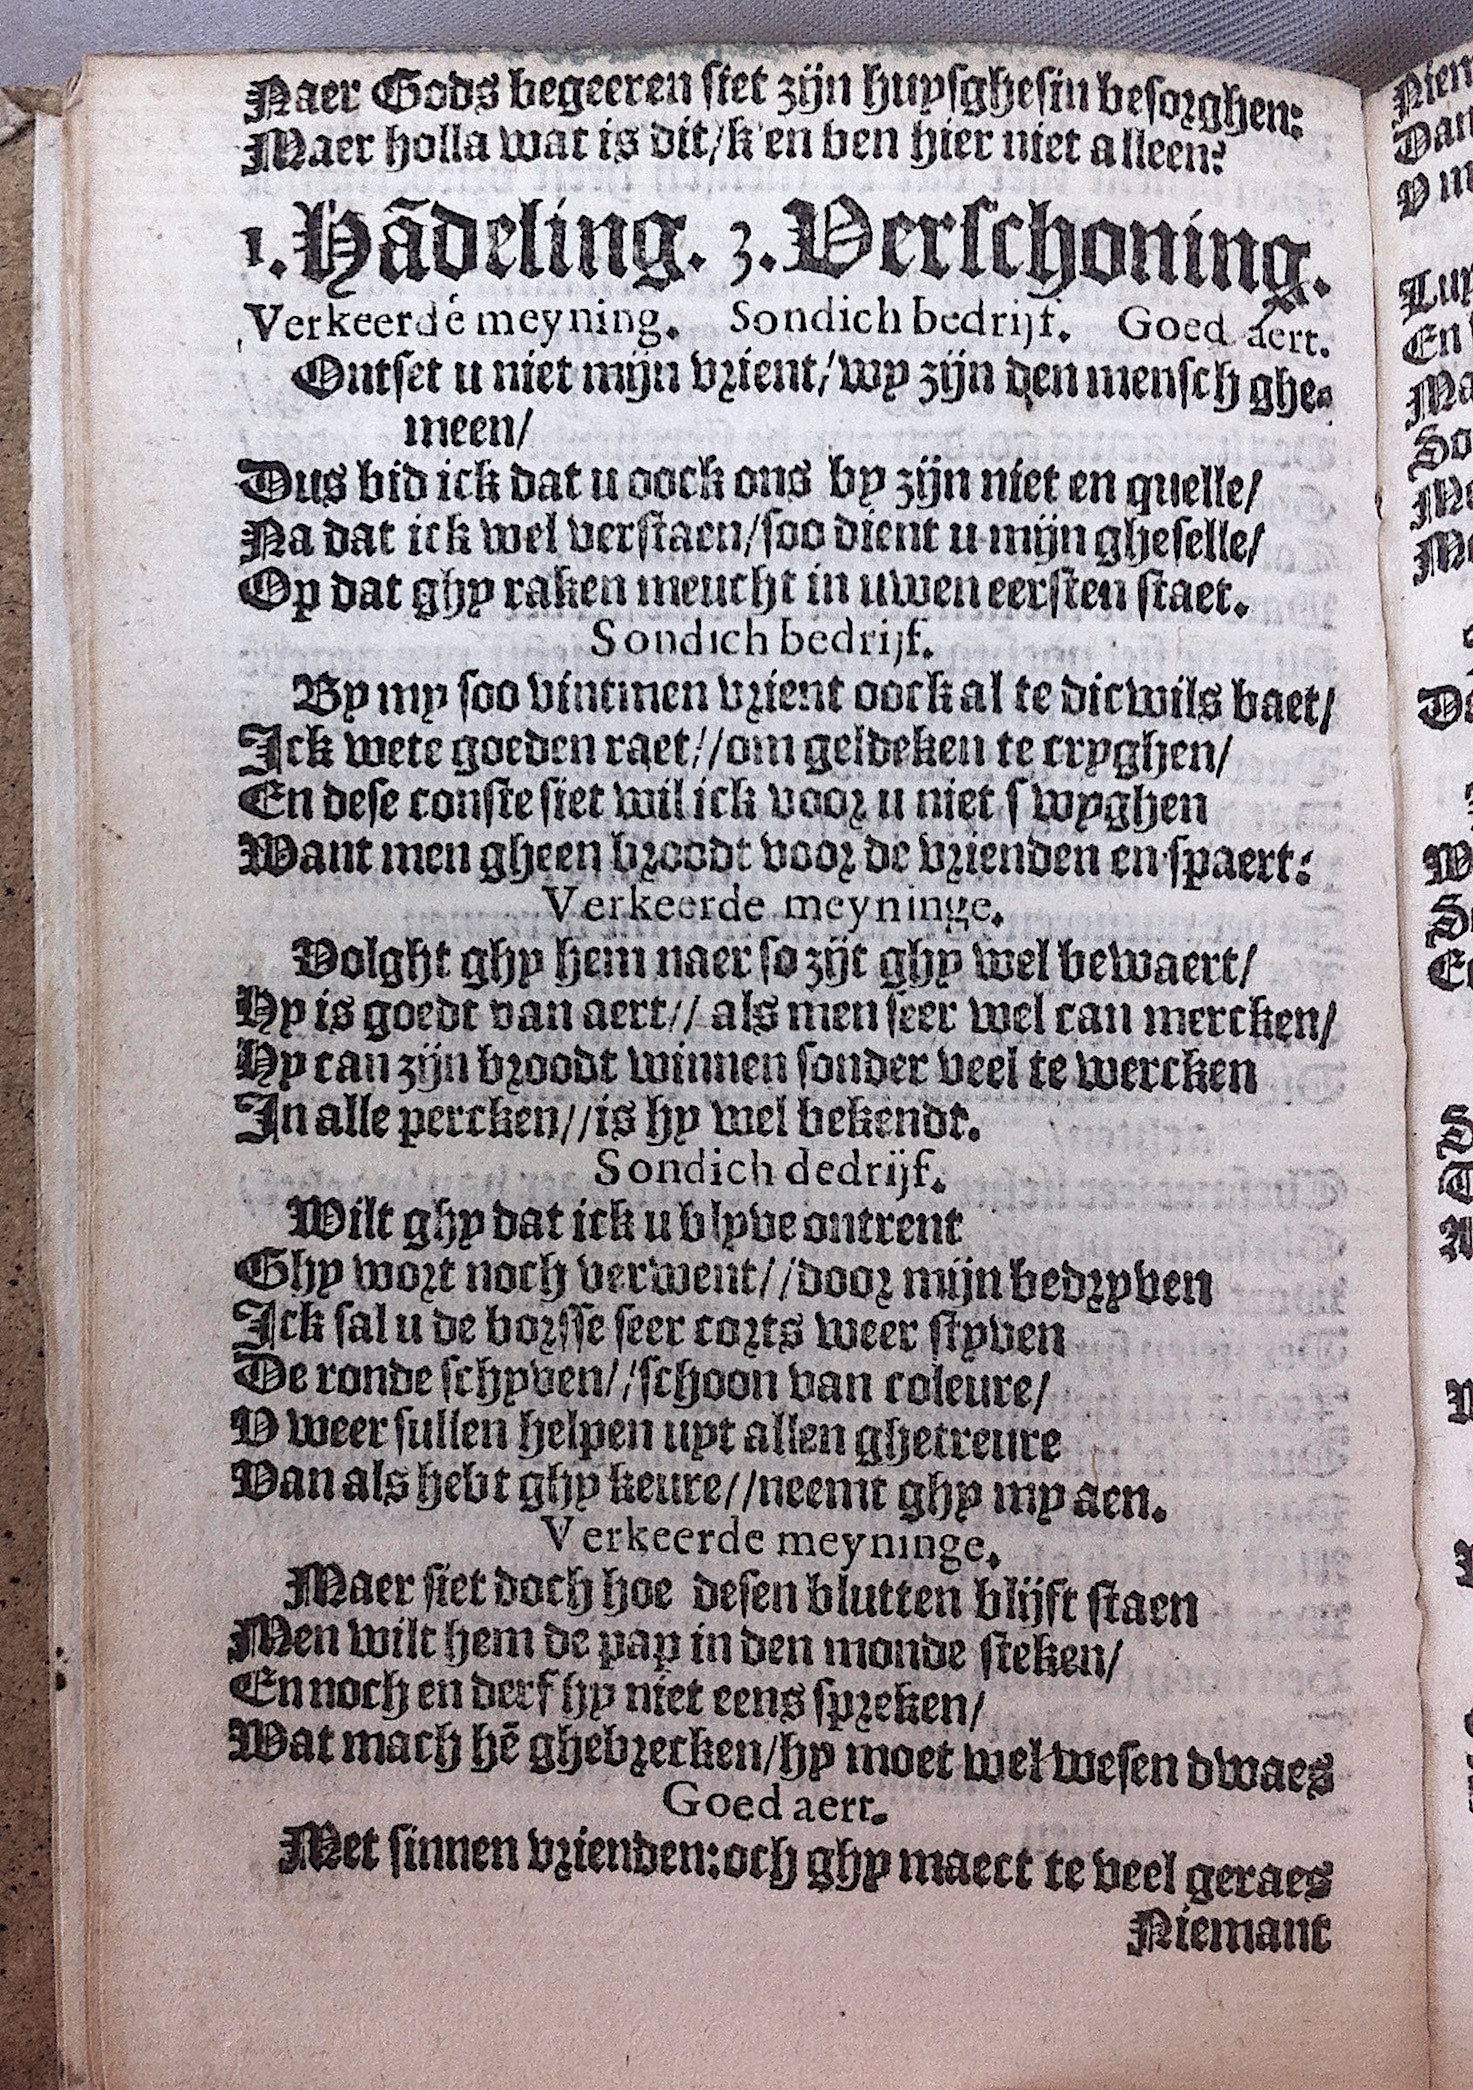 Naer Gods begeeren siet zijn huysghesin besorghen:
Maer holla wat is dit/k'en ben hier niet alleen?
1. Hãdeling. 3. Verschoning.
Verkeerde meyning. Sondich bedrijf. Goed aert.
Ontset u niet mijn vrient/wy zijn den mensch ghe-
meen/
Dus bid ick dat u oock ons by zijn niet en quelle/
Na dat ick wel verstaen/soo dient u mijn gheselle/
Op dat ghy raken meucht in uwen eersten staet.
Sondich bedrijf.
By my soo vintmen vrient oock al te dicwils baet/
Ick wete goeden raet//om geldeken te cryghen/
En dese conste siet wil ick voor u niet s'wyghen
Want men gheen broodt voor de vrienden en spaert:
Verkeerde meyninge.
Volght ghy hem naer so zijt ghy wel bewaert/
Hy is goedt van aert// als men seer wel can mercken/
Hy can zijn broodt winnen sonder veel te wercken
In alle percken//is hy wel bekendt.
Sondich dedrijf.
Wilt ghy dat ick u blyve ontrent
Ghy wort noch verwent//door mijn bedryven
Ick sal u de borsse seer corts weer styven
De ronde schyven//schoon van coleure/
V weer sullen helpen uyt allen ghetreure
Van als hebt ghy keure//neemt ghy my aen.
Verkeerde meyninge.
Maer siet doch hoe desen blutten blijft staen
Men wilt hem de pap in den monde steken/
En noch en derf hy niet eens spreken/
Wat mach hẽ ghebrecken/hy moet wel wesen dwaes
Goed aert.
Met sinnen vrienden:och ghy maect te veel geraes
Niemant